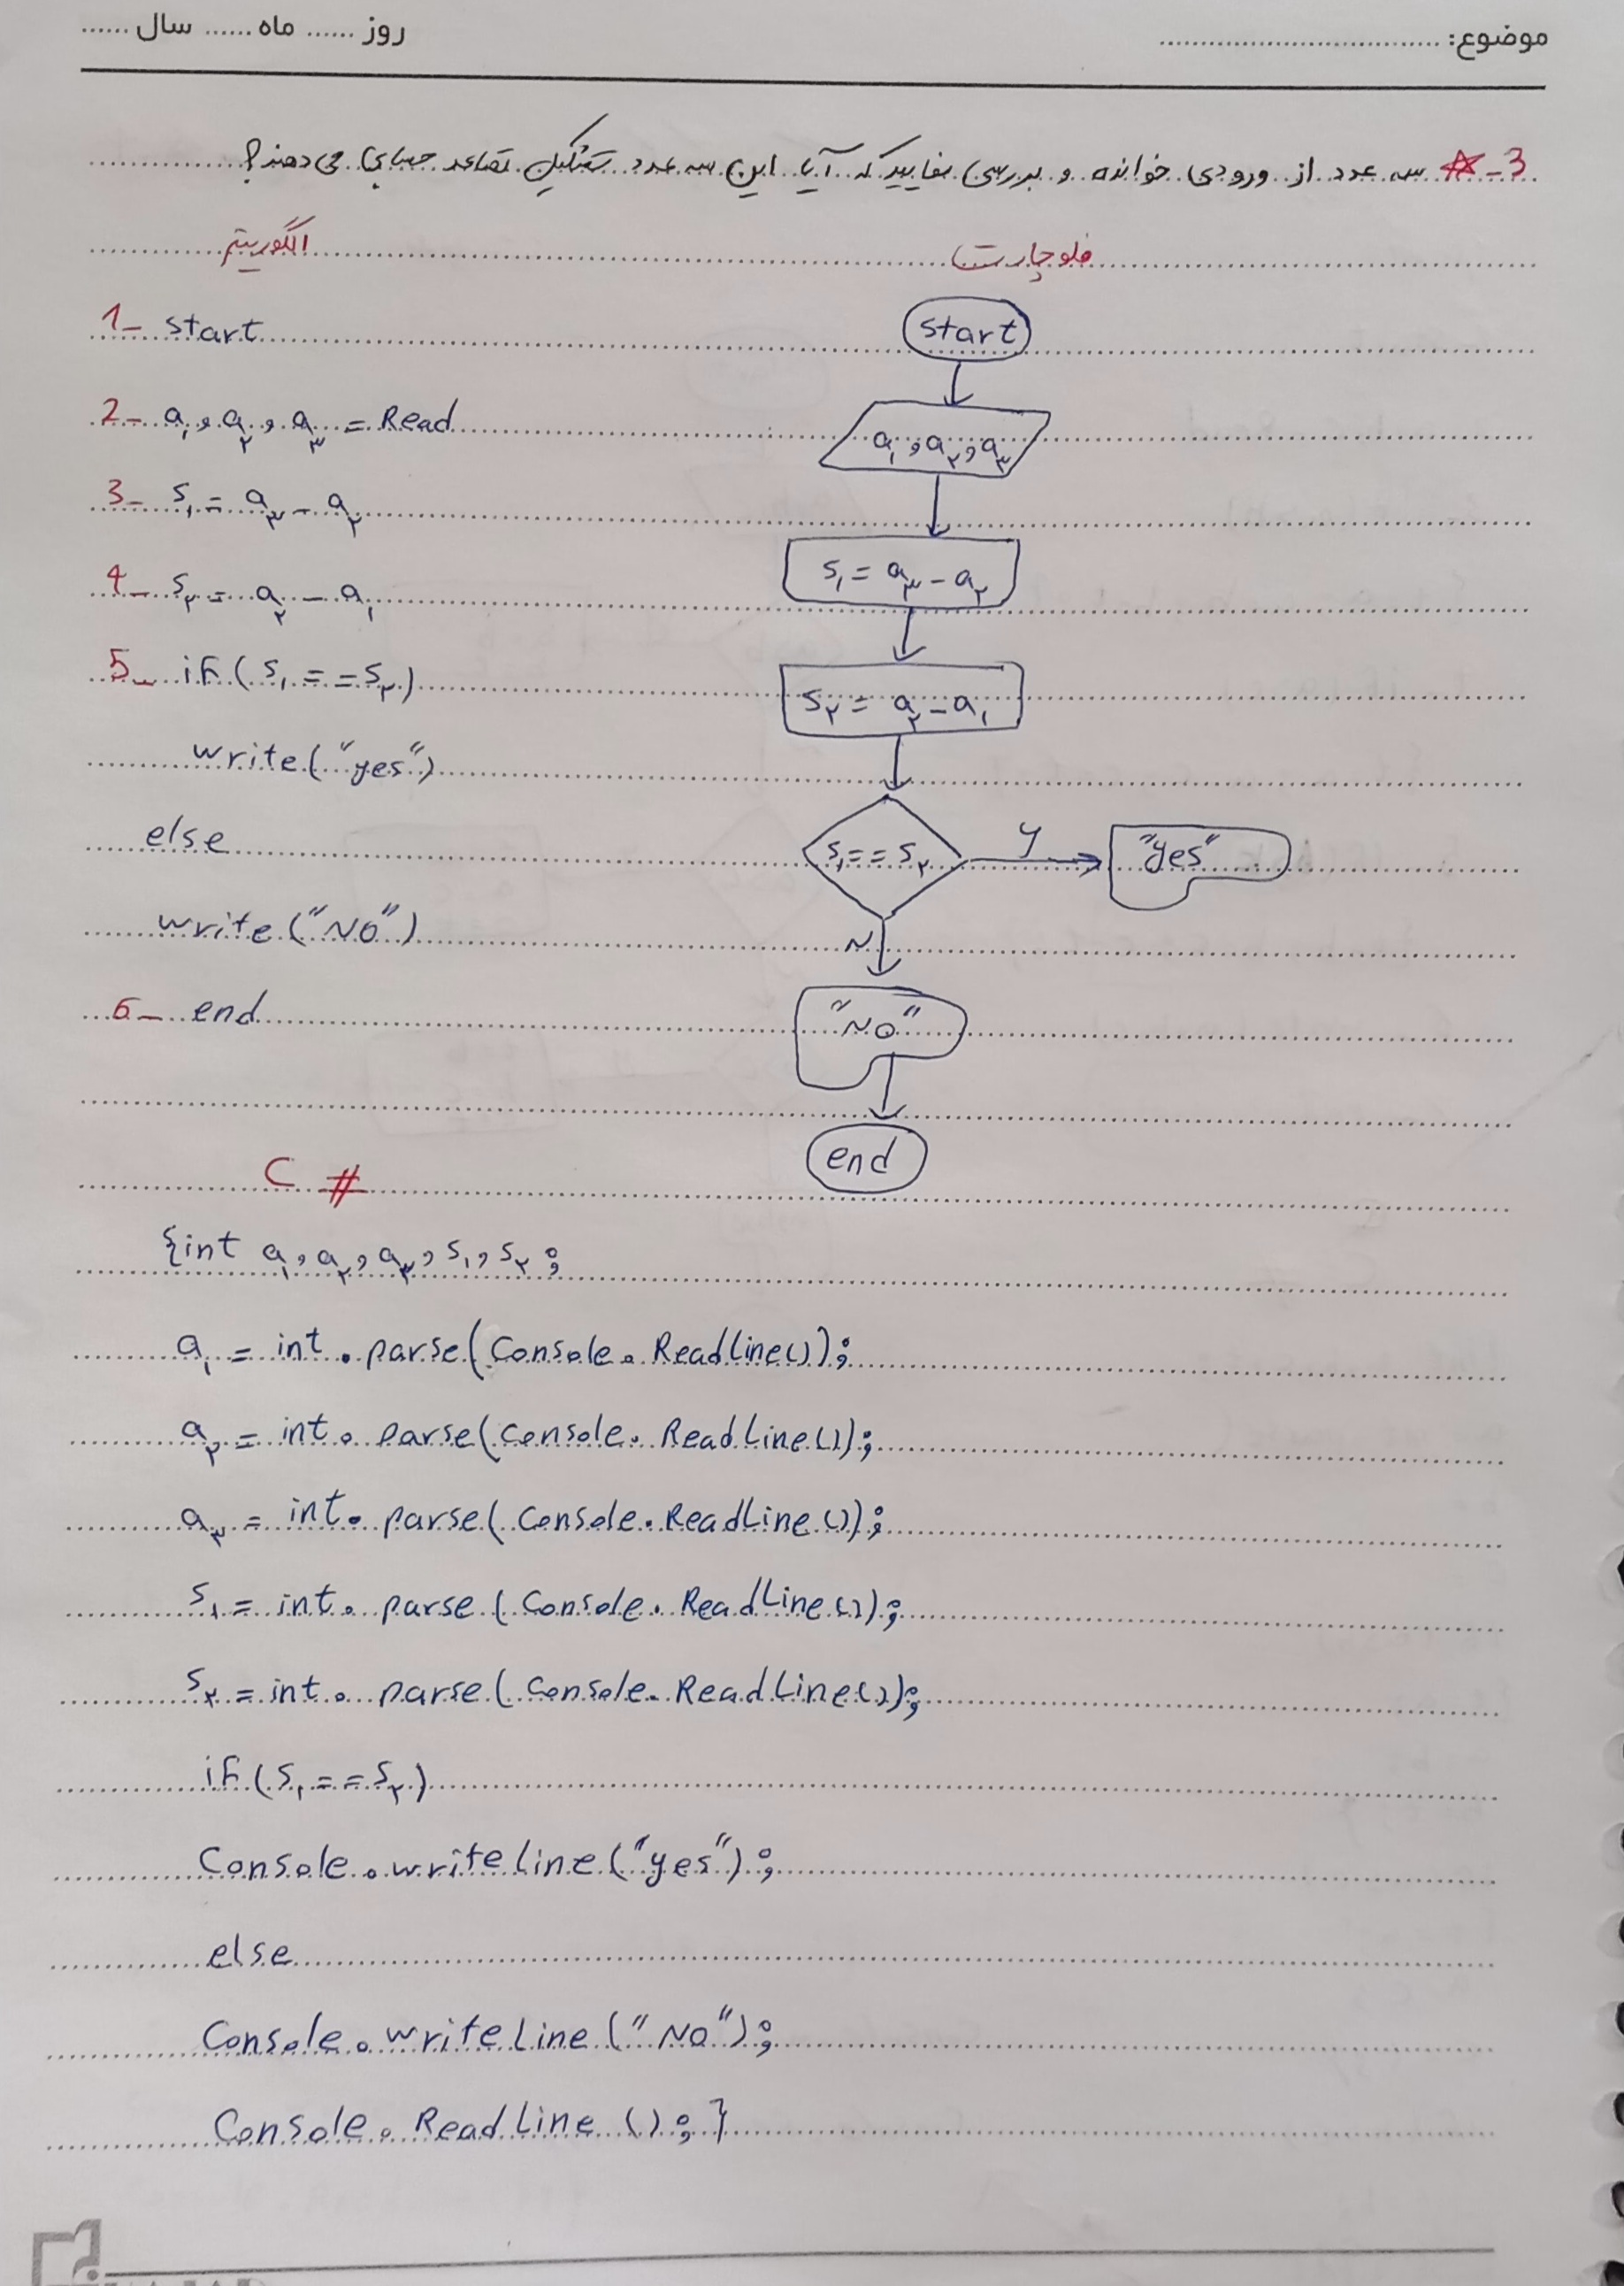 موضوع: ..............................
روز ...... ماه ...... سال ......
3- سه عدد از ورودی خوانده و بررسی نمایید که آیا این سه عدد تشکیل تصاعد حسابی می دهند؟
فلوچارت
الگوریتم
1- start
2- a۱, a۲, a۳ = Read
3- s۱ = a۳ - a۲
4- s۲ = a۲ - a۱
5- if (s۱ == s۲)
write("yes")
else
write("No")
6- end
start
a۱, a۲, a۳
s۱ = a۳ - a۲
s۲ = a۲ - a۱
s۱ == s۲
y
"yes"
N
"No"
end
C #
{int a۱, a۲, a۳, s۱, s۲;
a۱ = int.parse(Console.ReadLine());
a۲ = int.parse(Console.ReadLine());
a۳ = int.parse(Console.ReadLine());
s۱ = int.parse(Console.ReadLine());
s۲ = int.parse(Console.ReadLine());
if (s۱ == s۲)
Console.writeline("yes");
else
Console.writeLine("No");
Console.ReadLine();}